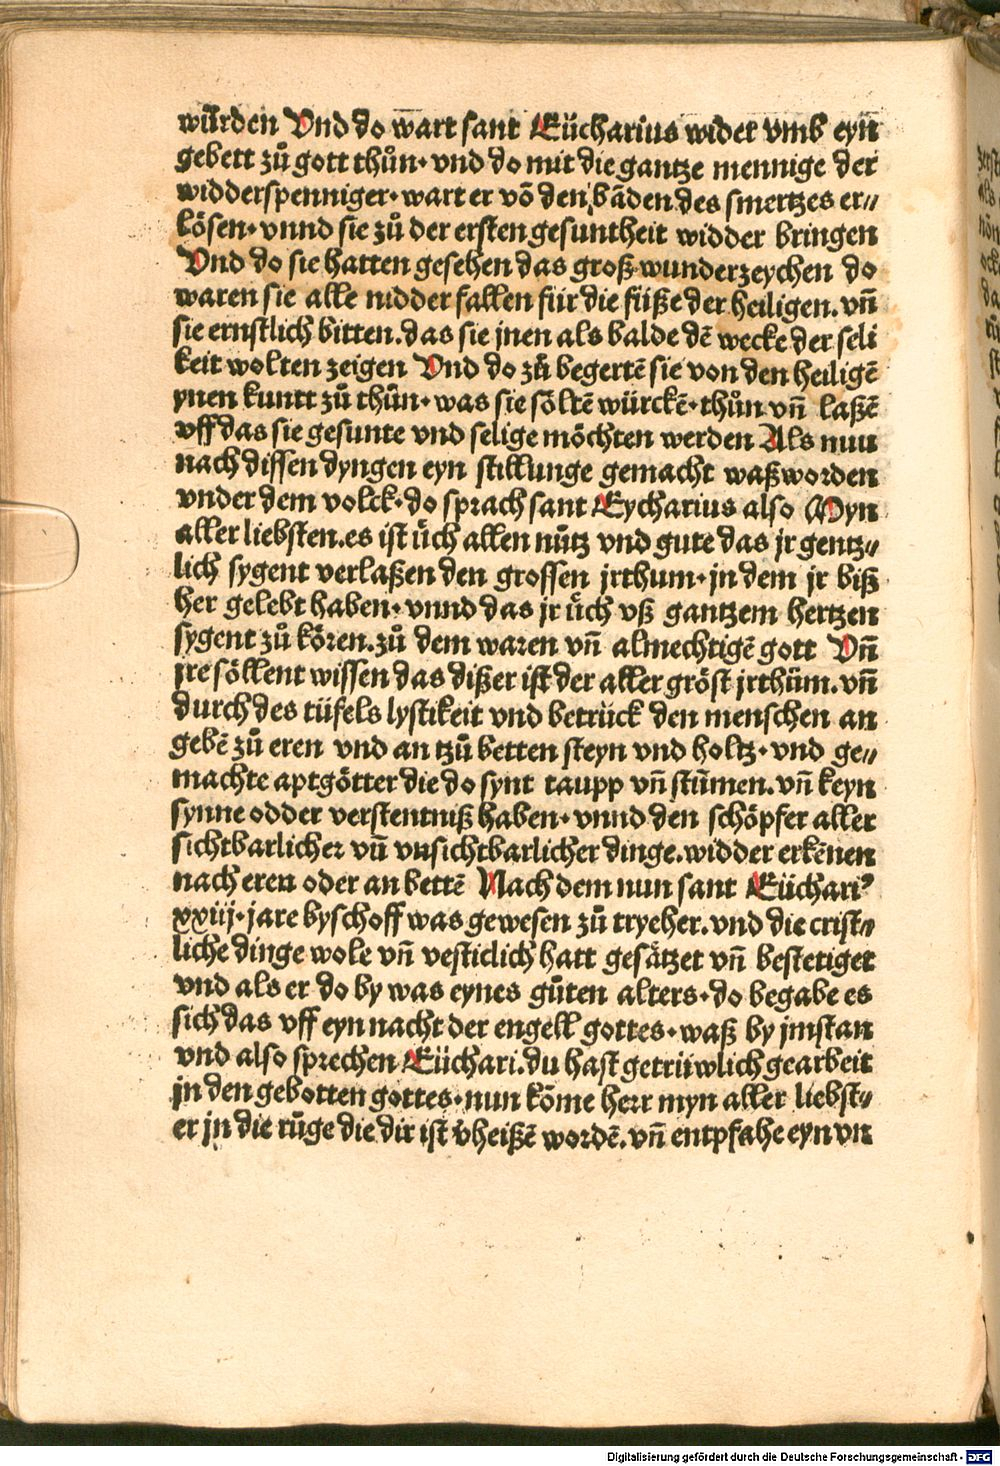 wůrden Vnd do wart sant Eücharius wider vmb eyn
gebett zů gott thůn· vnd do mit die gantze mennige der
widderspenniger· wart er võ den bãden des smertzes er⸗
lösen· vnnd sie zů der ersten gesuntheit widder bringen
Vnd do sie hatten gesehen das groß wunderzeychen do
waren sie alle nidder fallen für die füße der heiligen. vñ
sie ernstlich bitten. das sie jnen als balde dē wecke der seli
keit wolten zeigen Vnd do zů begertē sie von den heiligē
ynen kuntt zů thůn· was sie söltē würckē· thůn vñ laßē
vff das sie gesunte vnd selige möchten werden Als nuu
nach dissen dyngen eyn stillunge gemacht waß worden
vnder dem volck· do sprach sant Eycharius also Myn
aller liebsten. es ist üch allen nůtz vnd gute das jr gentz⸗
lich sygent verlaßen den grossen jrthum· jn dem jr biß
her gelebt haben· vnnd das jr üch vß gantzem hertzen
sygent zů kören. zů dem waren vñ almechtigē gott Vñ
jre söllent wissen das dißer ist der aller gröst jrthům. vñ
durch des tüfels lystikeit vnd betrück den menschen an
gebē zů eren vnd an tzů betten steyn vnd holtz· vnd ge⸗
machte aptgötter die do synt taupp vñ stům̃en. vñ keyn
synne odder verstentniß haben· vnnd den schöpfer aller
sichtbarlicher vñ vnsichtbarlicher dinge. widder erkēnen
nach eren oder an bettē Nach dem nun sant Eüchariꝰ
xxiij· jare byschoff was gewesen zů tryeher. vnd die crist⸗
liche dinge wole vñ vesticlich hatt gesätzet vñ bestetiget
vnd als er do by was eynes gůten alters· do begabe es
sich das vff eyn nacht der engell gottes· waß by jmstan
vnd also sprechen Eüchari. du hast getrüwlich gearbeit
jn den gebotten gottes· nun kõme herr myn aller liebst⸗
er jn die růge die dir ist v̄heißē wordē. vñ entpfahe eyn vn
Digitalisierung gefördert durch die Deutsche Forschungsgemeinschaft - DFG